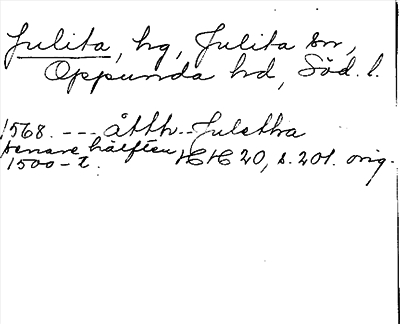 Julita, hg, Julita sn,
Oppunda hd, Söd. l.
1568. --- åtth.. Juletha
senare hälften
1500-t. HH 20, s. 201. orig.